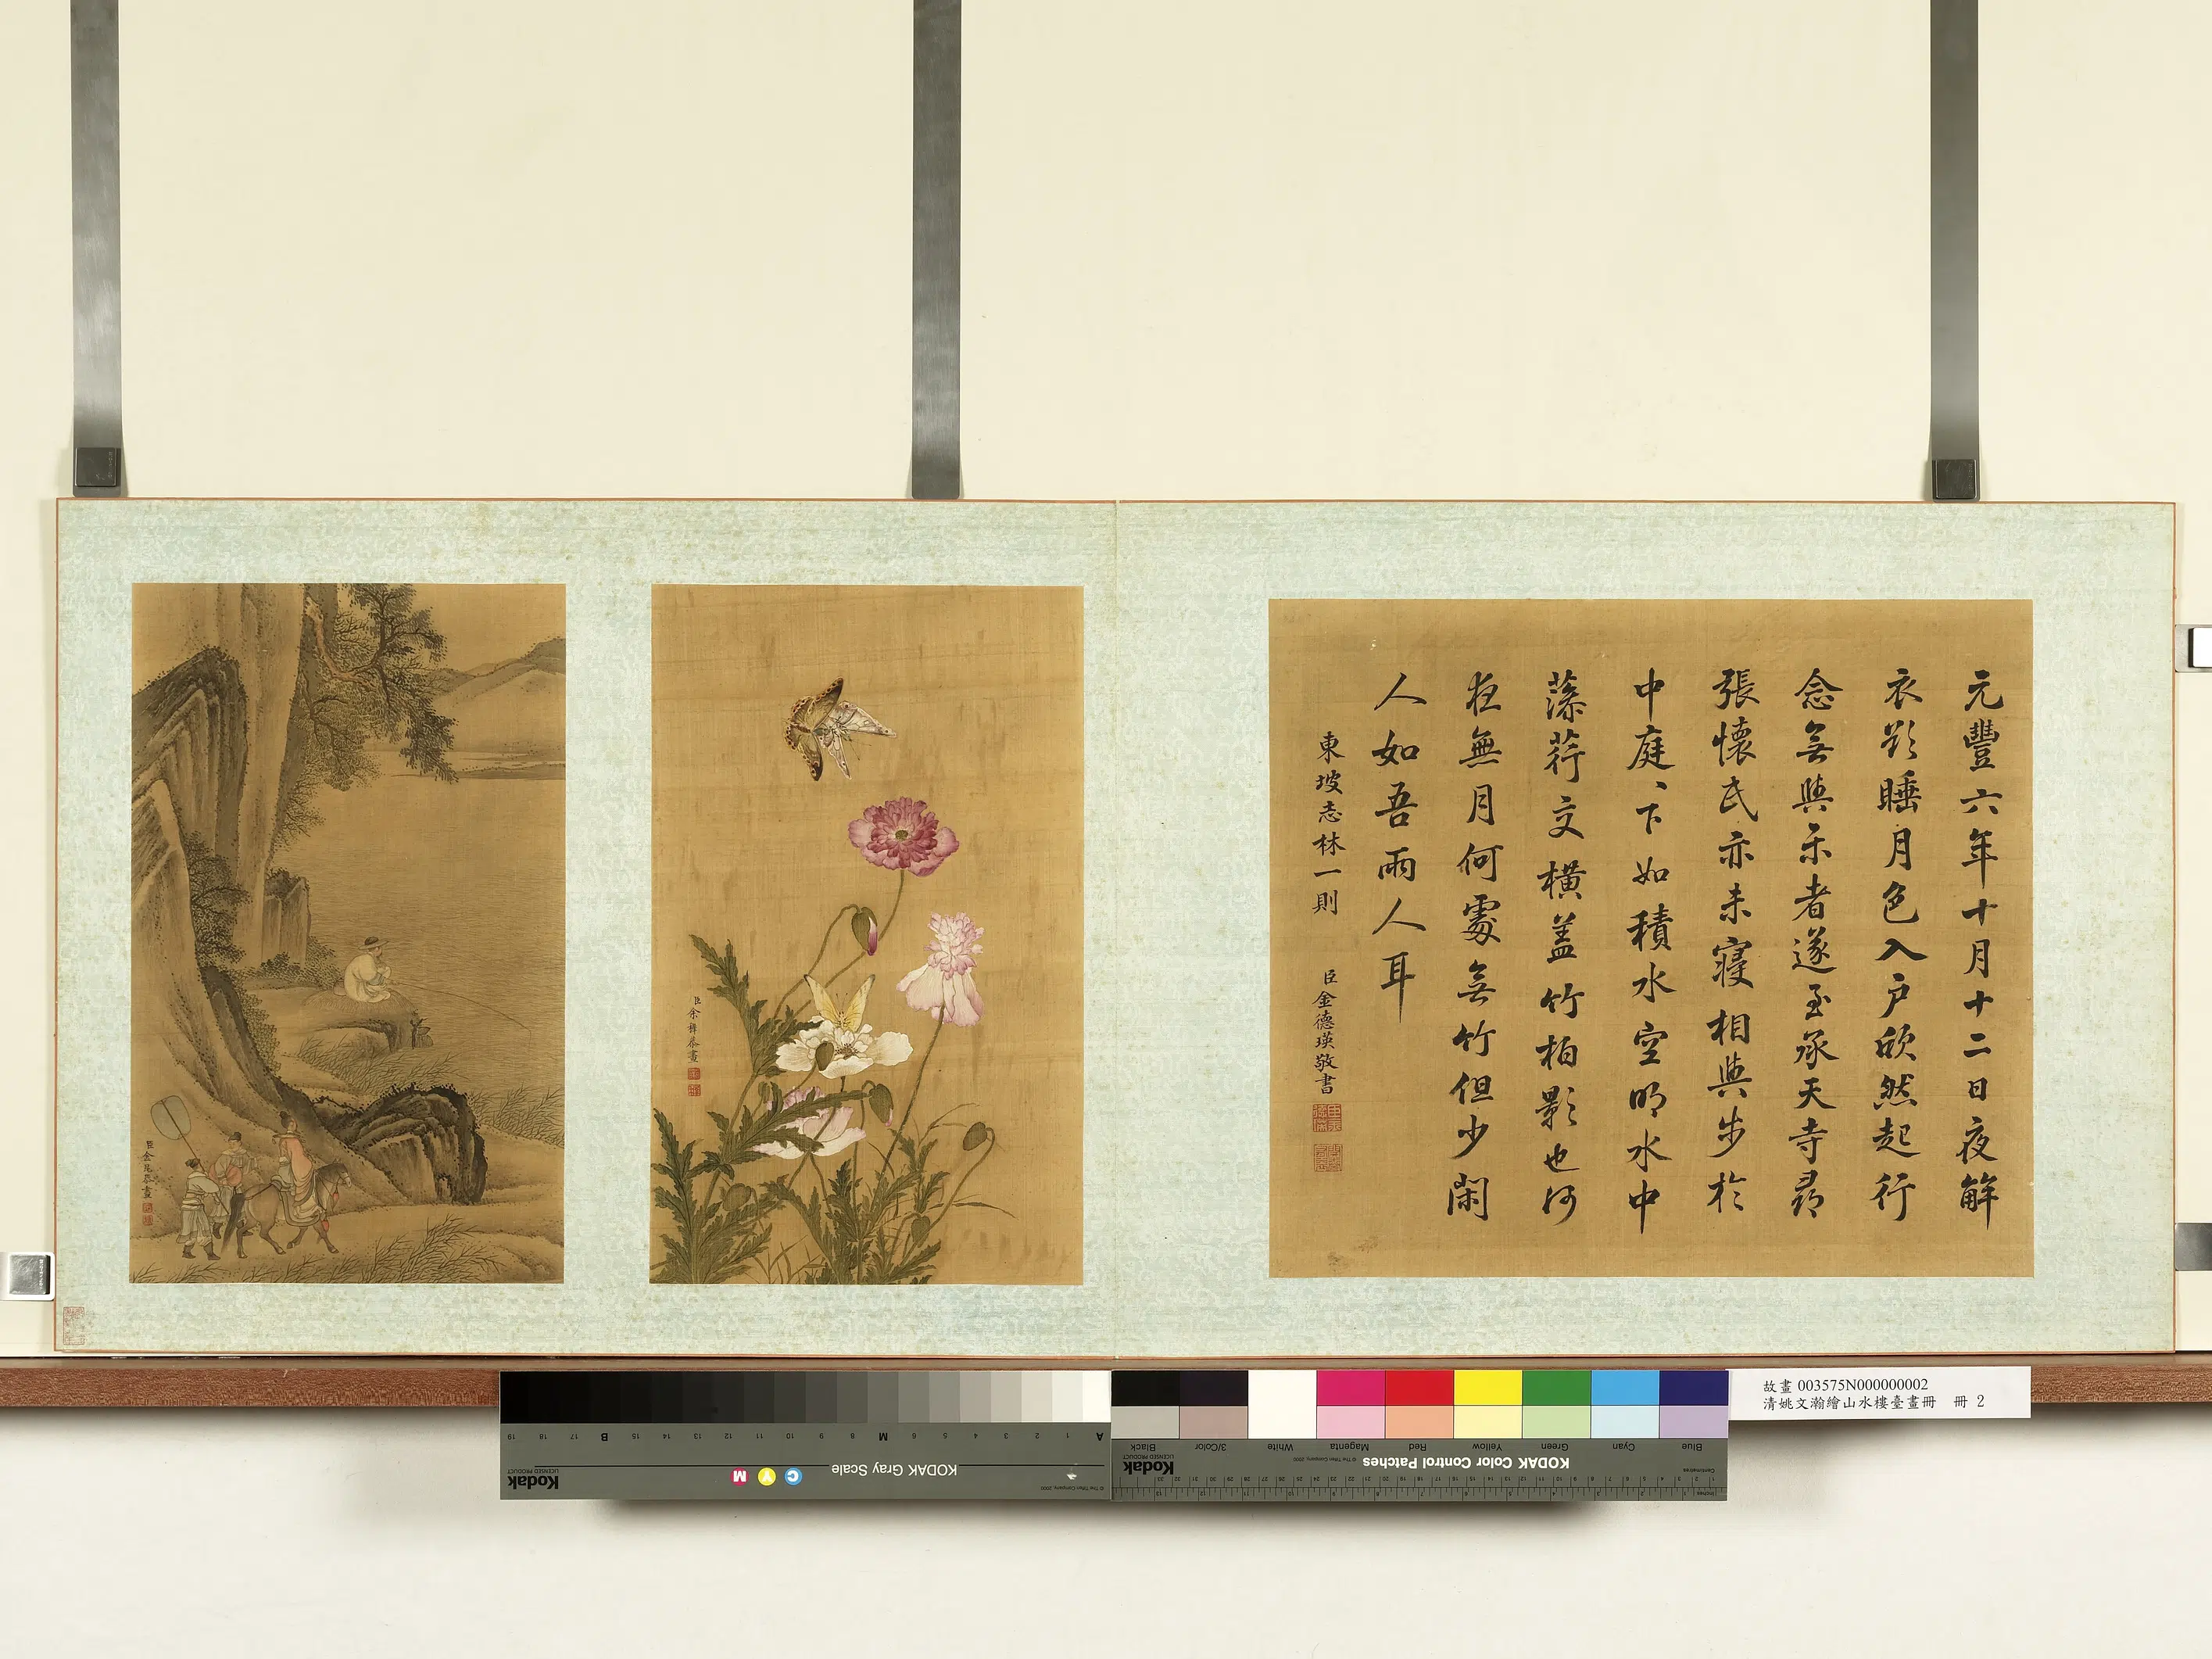 元豐六年十月十二日夜解
衣欲睡月色入户欣然起行
念無與樂者遂至承天寺尋
張懷民亦未寢相與步於
中庭、下如積水空明水中
藻荇交橫蓋竹柏影也何
夜無月何處無竹但少閑
人如吾兩人耳
東坡志林一則
臣金德瑛敬書
臣余穉恭畫
臣金昆恭畫
故畫 003575N000000002
清姚文瀚繪山水樓臺畫冊 冊 2
KODAK Color Control Patches
© The Tiffen Company, 2000
Kodak
LICENSED PRODUCT
Blue Cyan Green Yellow Red Magenta White 3/Color Black
Centimetres
Inches
KODAK Gray Scale
C Y M
Kodak
LICENSED PRODUCT
© The Tiffen Company, 2000
A 1 2 3 4 5 6 M 8 9 10 11 12 13 14 15 B 17 18 19